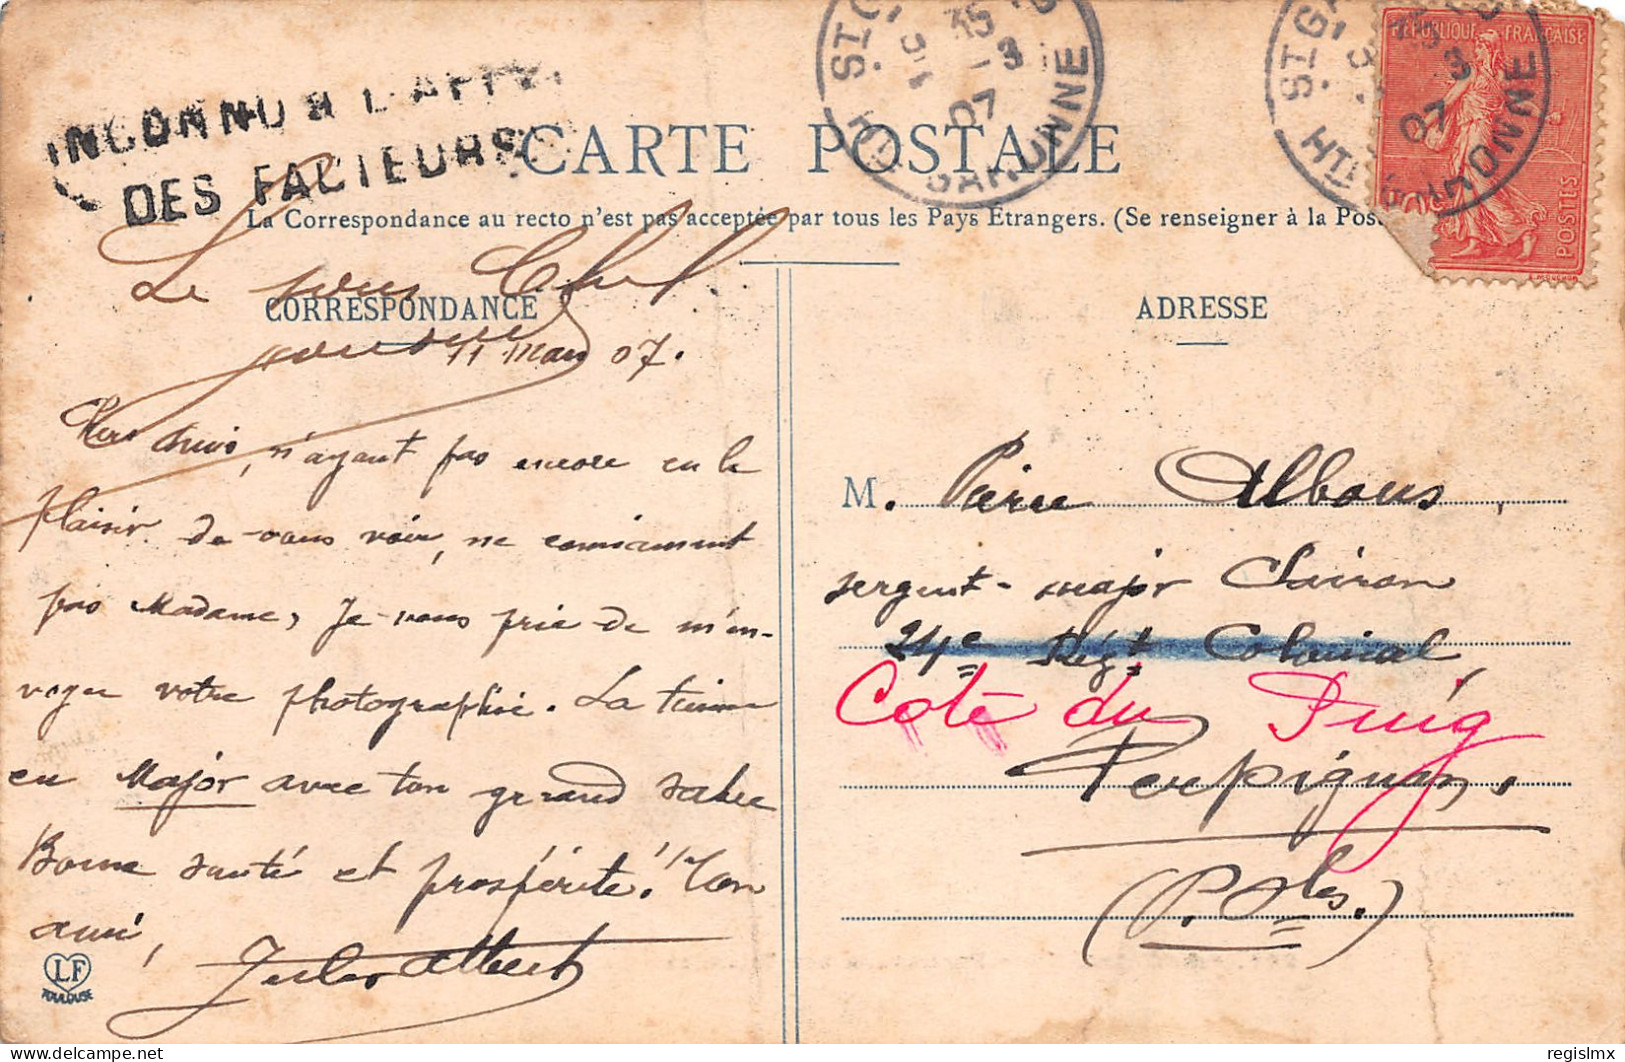 INCONNU A L'APPEL
DES FACTEURS
CARTE POSTALE
La Correspondance au recto n'est pas acceptée par tous les Pays Etrangers. (Se renseigner à la Pos
ST G
3
07
HTE GARONNE
ST G
3
07
HTE GARONNE
RÉPUBLIQUE FRANÇAISE
POSTES
CORRESPONDANCE
ADRESSE
Le
11 mars 07.
n'ayant pas encore eu le
plaisir de vous voir, ne connaissant
pas Madame, je vous prie de m'en-
voyer votre photographie. La tienne
en Major avec ton grand sabre
Bonne santé et prospérité! Ton
ami,
Jules Albert
LF
TOULOUSE
M. Pierre Albous,
sergent-major Clairon
24e Régt Colonial,
Côté du Puig
Perpignan,
(P. Oles.)
regislmx
delcampe.net